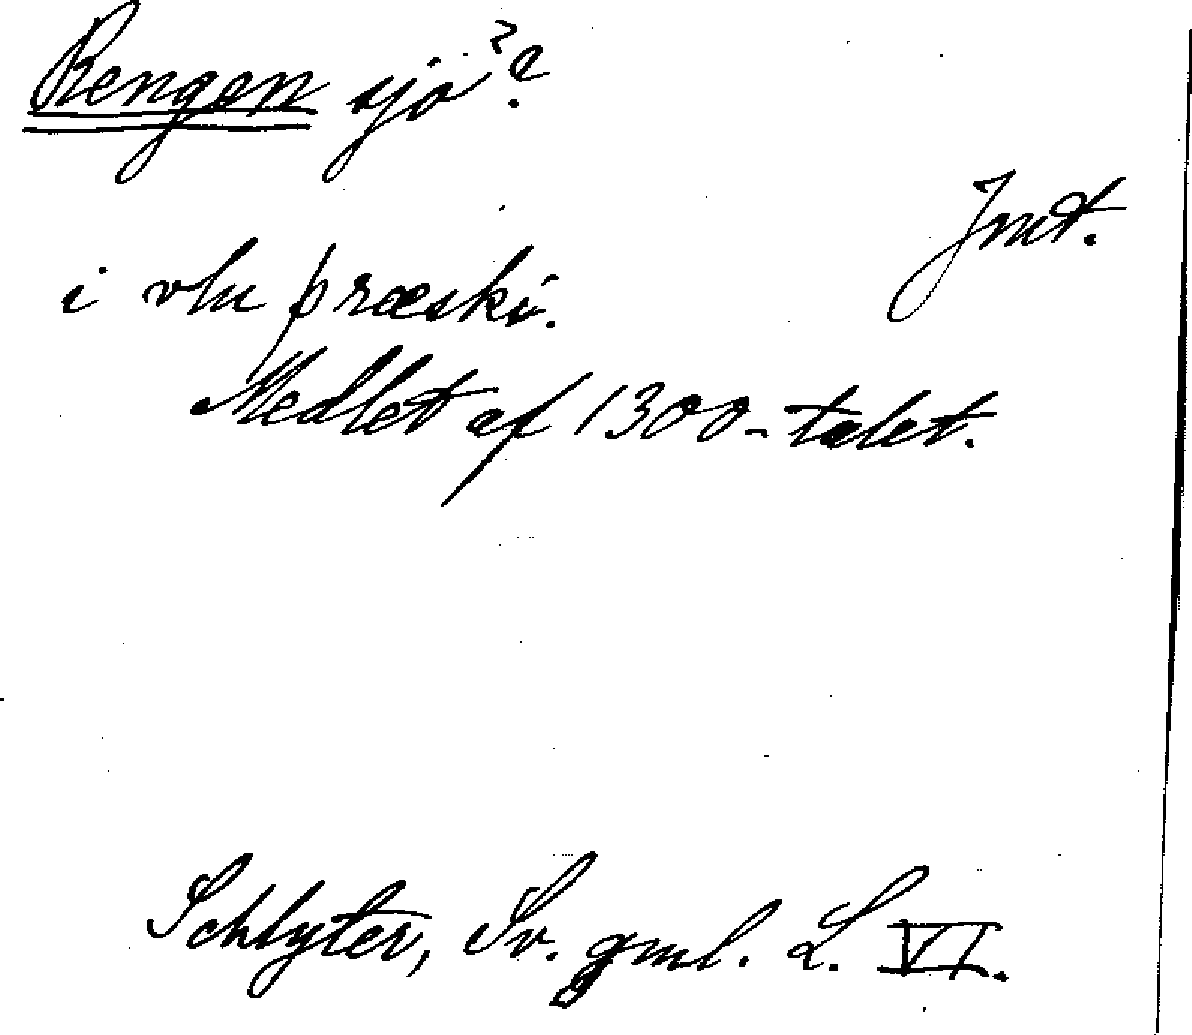 Rengen sjö ??
Jmt.
i vlu præski.
Medlet af 1300-talet.
Schlyter, Sv. gml. L. VI.